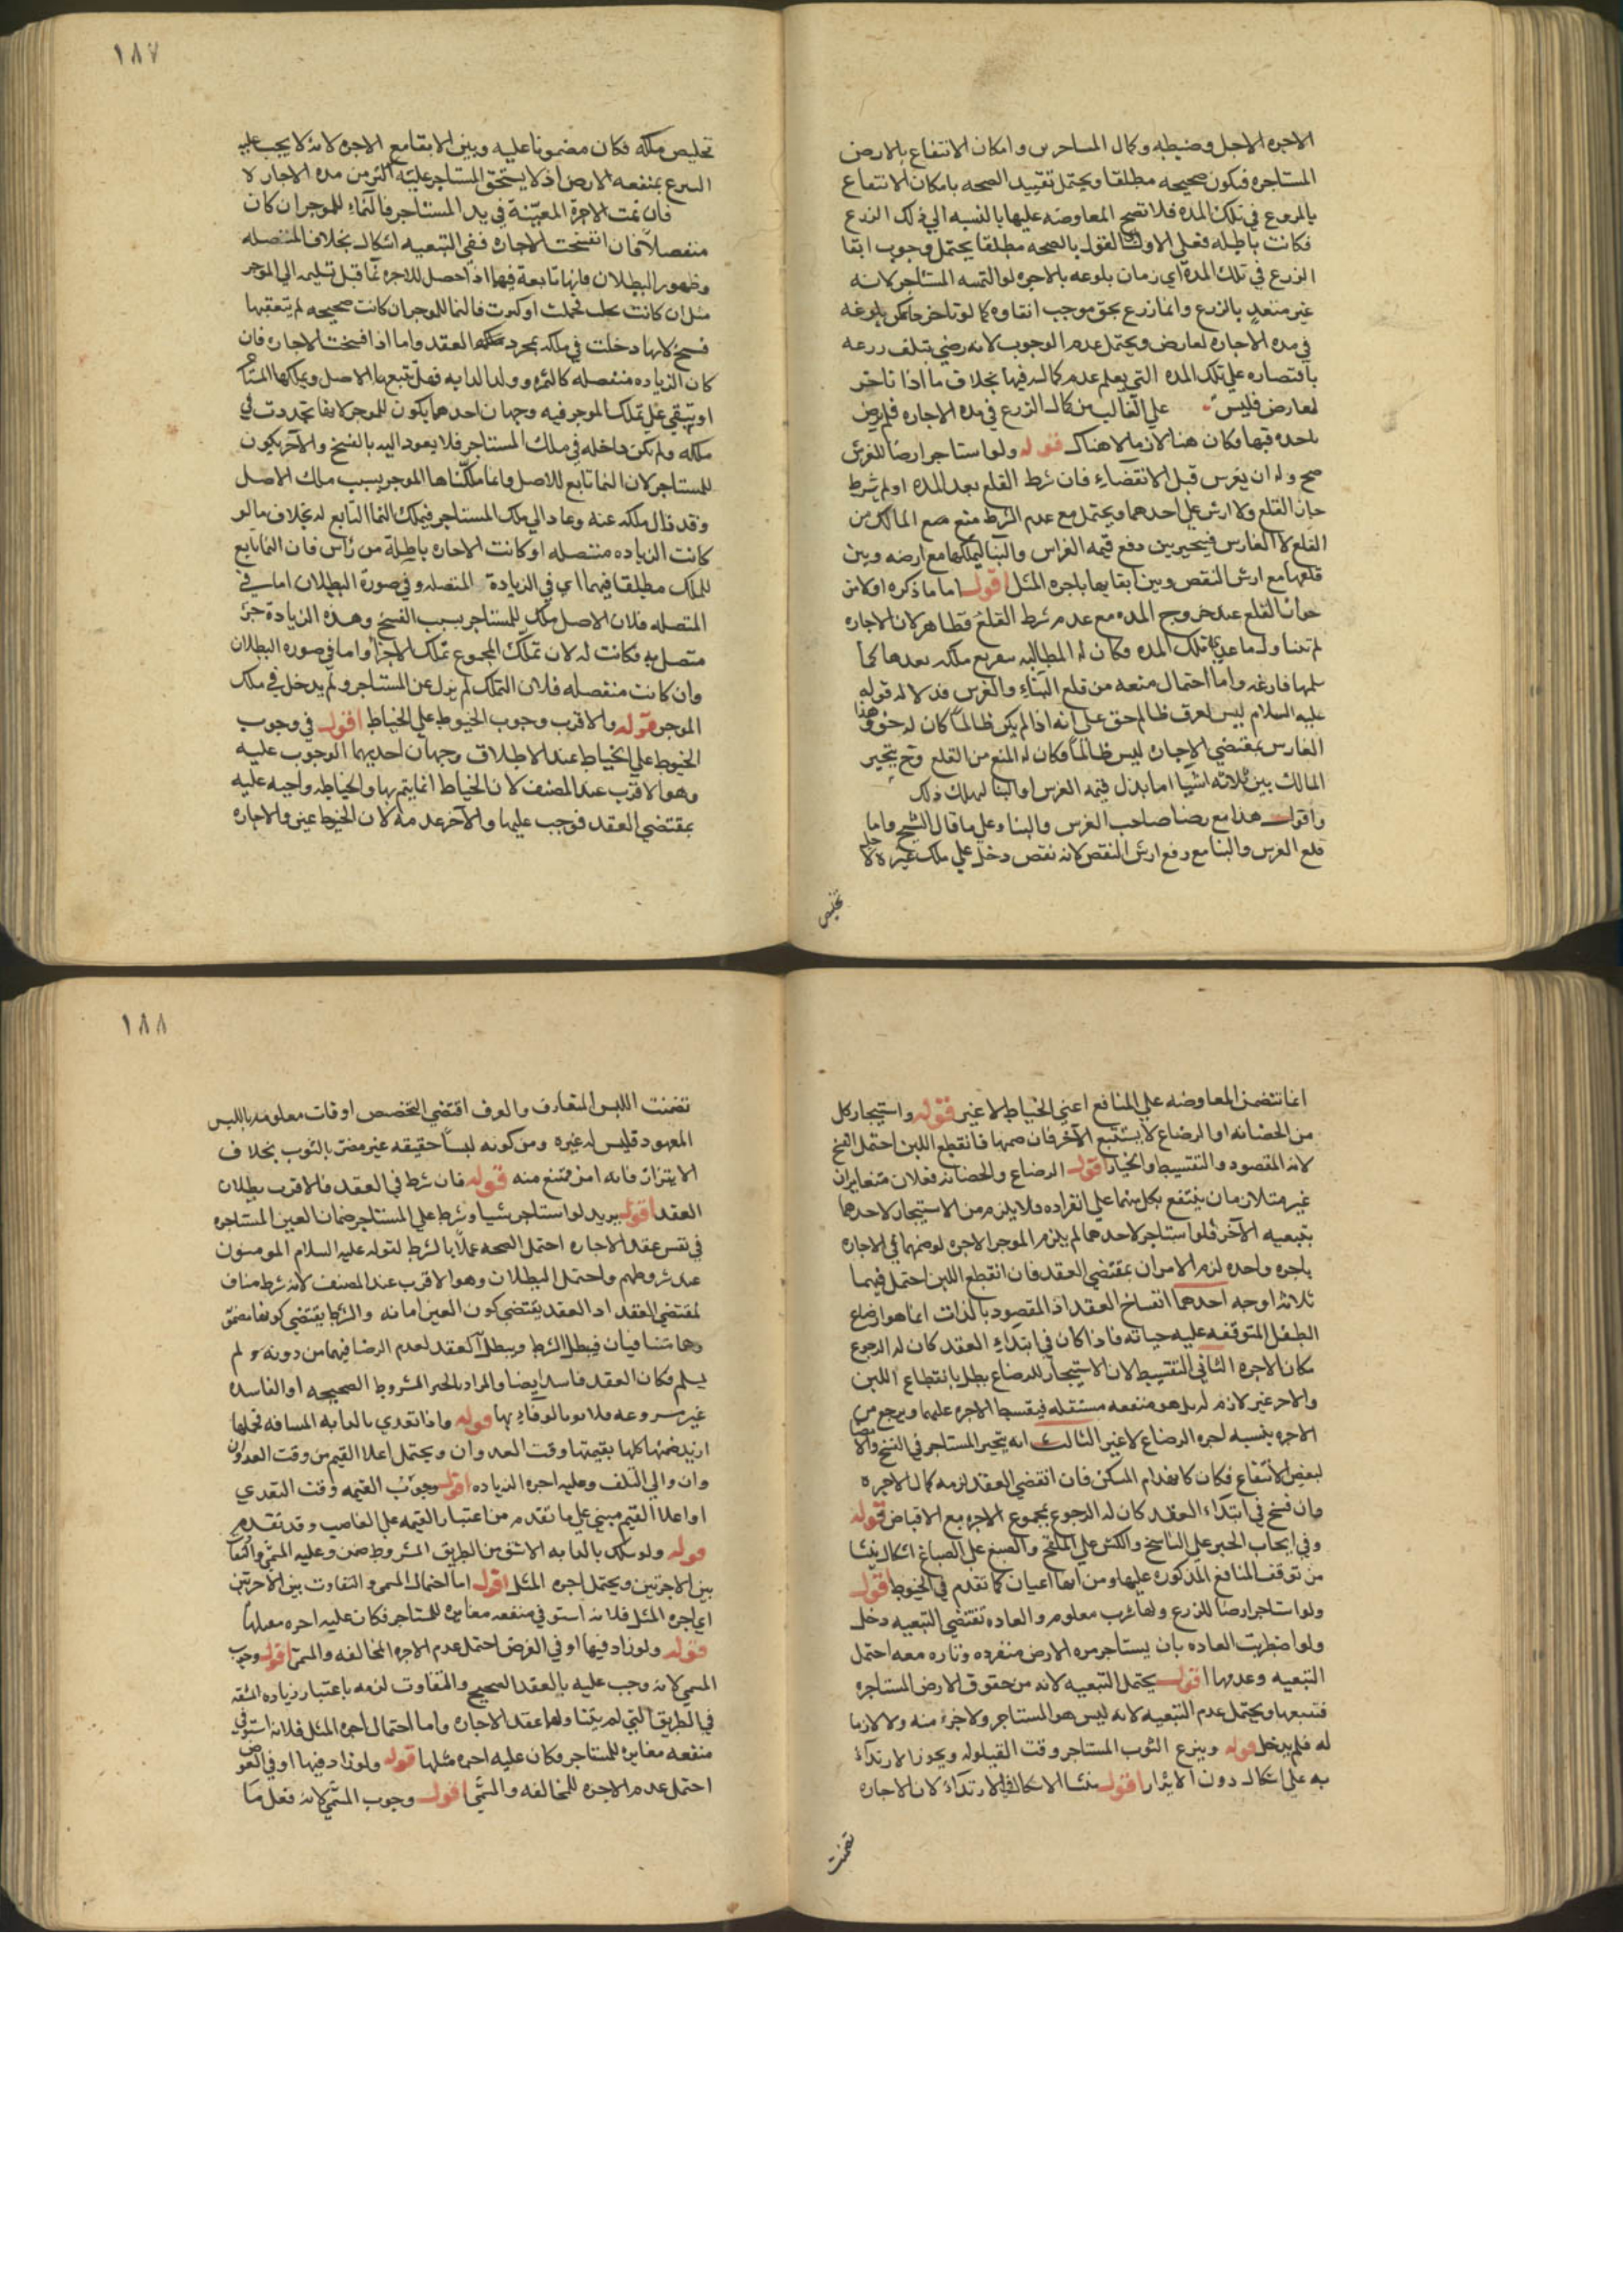 الاجره الاجل وضبطه وكمال المساحرين وامكان الانتفاع بالارض
المستاجره فيكون صحيحه مطلقا ويحتمل تقييد الصحه بامكان الانتفاع
بالمزروع في تلك المده فلا تصح المعاوضه عليها بالنسبه الي ذلك الزرع
فكانت باطله فعلي الاول القول بالصحه مطلقا يحتمل وجوب ابقا
الزرع في تلك المدة اي زمان بلوعه بالاجره لو التمسه المستاجر لانه
غير متعد بالزرع وانما زرع بحق موجب ابقاوه كما لو تاخر بلوغه
في مده الاجاره لعارض ويحتمل عدم الوجوب لانه رضي بتلف زرعه
باقتصاره علي تلك المده التي يعلم عدم كماله فيها بخلاف ما اذا تاخر
لعارض فليس علي الغالب من كمال الزرع في مده الاجاره فلم يرض
باحده قبها وكان هنا لازما لا هناك قوله ولو استاجر ارضا للغرس
صح وله ان يغرس قبل الانقضاء فان شرط القلع بعد المده او لم يشرط
جاز القلع ولا ارش علي احدهما ويحتمل مع عدم الشرط منع المالك من
القلع لا الغارس فيتخير بين دفع قيمه الغراس والبنا ليملكها مع ارضه وبين
قلعها مع ارش النقص وبين ابقايها باجره المثل اقول اما ما ذكره اولا من
جواز القلع عند خروج المده مع عدم شرط القلع فظاهر لان الاجاره
لم تتناول ما عدي تلك المده فكان له المطالبه بتفريع ملكه بعدها كما
سلمها فارغه واما احتمال منعه من قلع البناء والغرس فدلاله قوله
عليه السلام ليس لعرق ظالم حق علي انه اذا لم يكن ظالما كان له حق وهذا
الغارس بمقتضي الاجاره ليس ظالما فكان له المنع من القلع وح يتخير
المالك بين ثلاثه اشيا اما بذل قيمه الغرس او البنا ليملك ذلك
واقول هذا مع رضا صاحب الغرس والبناء وعلي ما قال الشيخ واما
قلع الغرس والبنا مع دفع ارش النقص لانه نقص دخل علي ملك غيره لاجل
تخليص
١٨٧
تخليص ملكه فكان مضمونا عليه وبين الابقا مع الاجره لانه لا يجب عليه
التبرع بمنفعه الارض اذ لا يستحق المستاجر عليه اكثر من مده الاجاره لا
فان نمت الاجرة المعيّنة في يد المستاجر فالنماء للموجر ان كان
منفصلا فان انفسخت الاجاره ففي التبعيه اشكال بخلاف المنفصله
وظهور البطلان فانها تابعة فيهما اذا حصل للاجره نما قبل تسليمه الي الموجر
مثل ان كانت نخلا فحملت او كبرت فالنما للموجر ان كانت صحيحه لم يتعقبها
فسخ لانها دخلت في ملكه بمجرد العقد واما اذا فسخت الاجاره فان
كان الزياده منفصله كالثمره وولد الدابه فهل تتبعها الاصل ويملكها المستاجر
او تبقي علي تملك الموجر فيه وجهان احدهما يكون للموجر لانها تجددت في
ملكه ولم تكن داخله في ملك المستاجر فلا يعود اليه بالفسخ والآخر يكون
للمستاجر لان النما تابع للاصل وانما ملكناها الموجر بسبب ملك الاصل
وقد زال ملكه عنه وعاد الي ملك المستاجر فيملك النما التابع له بخلاف ما لو
كانت الزياده منفصله او كانت الاجاره باطلة من راس فان النما تابع
للملك مطلقا فيهما اي في الزيادة المتصله وفي صورة البطلان اما في
المتصله فلان الاصل ملك للمستاجر بسبب الفسخ وهذه الزيادة جزء
متصل به فكانت له لان تملك المجموع تملك الاجزا واما في صوره البطلان
وان كانت منفصله فلان التملك لم يزل عن المستاجر ولم يدخل في ملك
الموجر قوله والاقرب وجوب الخيوط علي الخياط اقول في وجوب
الخيوط علي الخياط عند الاطلاق وجهان احديهما الوجوب عليه
وهو الاقرب عند المصنف لان الخياط انما يتم بها والخياطه واجبه عليه
بمقتضي العقد فوجب عليها والآخر عدمه لان الخيوط عين والاجاره
انما تتضمن المعاوضه علي المنافع اعني الخياط لا غير قوله واستيجار كل
من الحضانه او الرضاع لا يستتبع الآخر فان ضمها فانقطع اللبن احتمل الفسخ
لانه المقصود والتقسيط والخيار اقول الرضاع والحضانه فعلان متغايران
غير متلازمان ينتفع بكل منهما علي انفراده فلا يلزم من الاستيجار لاحدهما
بتبعيه الآخر فلو استاجر لاحدهما لم يلزم الموجر الاجره لو ضمهما في الاجاره
باجره واحده لزم الامران بمقتضي العقد فان انقطع اللبن احتمل فيهما
ثلاثه اوجه احدهما انفساخ العقد اذ المقصود بالذات انما هو ارضاع
الطفل المتوقفه عليه حياته فاذا كان في ابتداء العقد كان له الرجوع
بكمال الاجره الثاني التقسيط لان الاستيجار للرضاع بطل بانقطاع اللبن
والاخر غير لازم له بل هو منفعه مستقله فيقسط الاجره عليهما ويرجع من
الاجره بنسبه اجره الرضاع لا غير الثالث انه يتخير المستاجر في الفسخ والامضا
لبعض الانتفاع فكان كانهدام المسكن فان انقضي العقد لزمه كمال الاجره
وان فسخ في ابتداء العقد كان له الرجوع بمجموع الاجره مع الاقباض قوله
وفي ايجاب الحبر علي الناسخ والكش علي الملقح والصبغ علي الصباغ اشكال ينشا
من توقف المنافع المذكوره عليها ومن انها اعيان كما تقدم في الخيوط اقول
ولو استاجر ارضا للزرع ولها شرب معلوم والعاده تقتضي التبعيه دخل
ولو اضطربت العاده بان يستاجر مره الارض منفرده وتاره معه احتمل
التبعيه وعدمها اقول يحتمل التبعيه لانه من حقوق الارض المستاجره
فتتبعها ويحتمل عدم التبعيه لانه ليس هو المستاجر ولا جزء منه ولا لازما
له فلم يدخل قوله وينزع الثوب المستاجر وقت القيلوله ويجوز الارتداء
به علي اشكال دون الاتزار اقول ينشا الاشكال في الارتداء لان الاجاره
تضمنت
١٨٨
تضمنت اللبس المتعارف والعرف اقتضي التخصص اوقات معلومه باللبس
المعهود فليس له غيره ومن كونه لبسا حقيقه غير مضر بالثوب بخلاف
الاتزار فانه امر ممتنع منه قوله فان شرط في العقد فالاقرب بطلان
العقد اقول يريد لو استاجر شيا وشرط علي المستاجر ضمان العين المستاجره
في نفس عقد الاجاره احتمل الصحه عملا بالشرط لقوله عليه السلام المومنون
عند شروطهم واحتمل البطلان وهو الاقرب عند المصنف لانه شرط مناف
لمقتضي العقد اذ العقد يقتضي كون العين امانه والشرط يقتضي كونها مضمونه
وهما متنافيان فيبطل الشرط ويبطل العقد لعدم الرضا فيهما من دونه ولم
يسلم فكان العقد فاسد ايضا والمراد بالخبر الشروط الصحيحه او الفاسده
غير مشروعه فلا يومر بالوفاء بها قوله واذا تعدي بالدابه المسافه تحملها
ازيد ضمنها كلها بقيمتها وقت العدوان ويحتمل اعلا القيم من وقت العدوان
وان والي التلف وعليه اجره الزياده اقول وجوب القيمه وقت التعدي
او اعلا القيم مبني علي ما تقدم من اعتبار القيمه علي الغاصب وقد تقدم
قوله ولو سلك بالدابه الاشق من الطريق المشروط ضمن وعليه المسمي والتفاوت
بين الاجرتين ويحتمل اجره المثل اقول اما احتمال المسمي والتفاوت بين الاجرتين
اي اجره المثل فلانه استوفي منفعه مغايره للمستاجر فكان عليه اجره مثلها
قوله ولو زاد فيها او في الغرض احتمل عدم الاجره للمخالفه والمسمي اقول وجوب
المسمي لانه وجب عليه بالعقد الصحيح والتفاوت لزمه باعتبار زياده المشقه
في الطريق التي لم يتناولها عقد الاجاره واما احتمال اجره المثل فلانه استوفي
منفعه مغايره للمستاجر فكان عليه اجره مثلها قوله ولو زاد فيها او في العرض
احتمل عدم الاجره للمخالفه والمسمي اقول وجوب المسمي لانه فعل ما